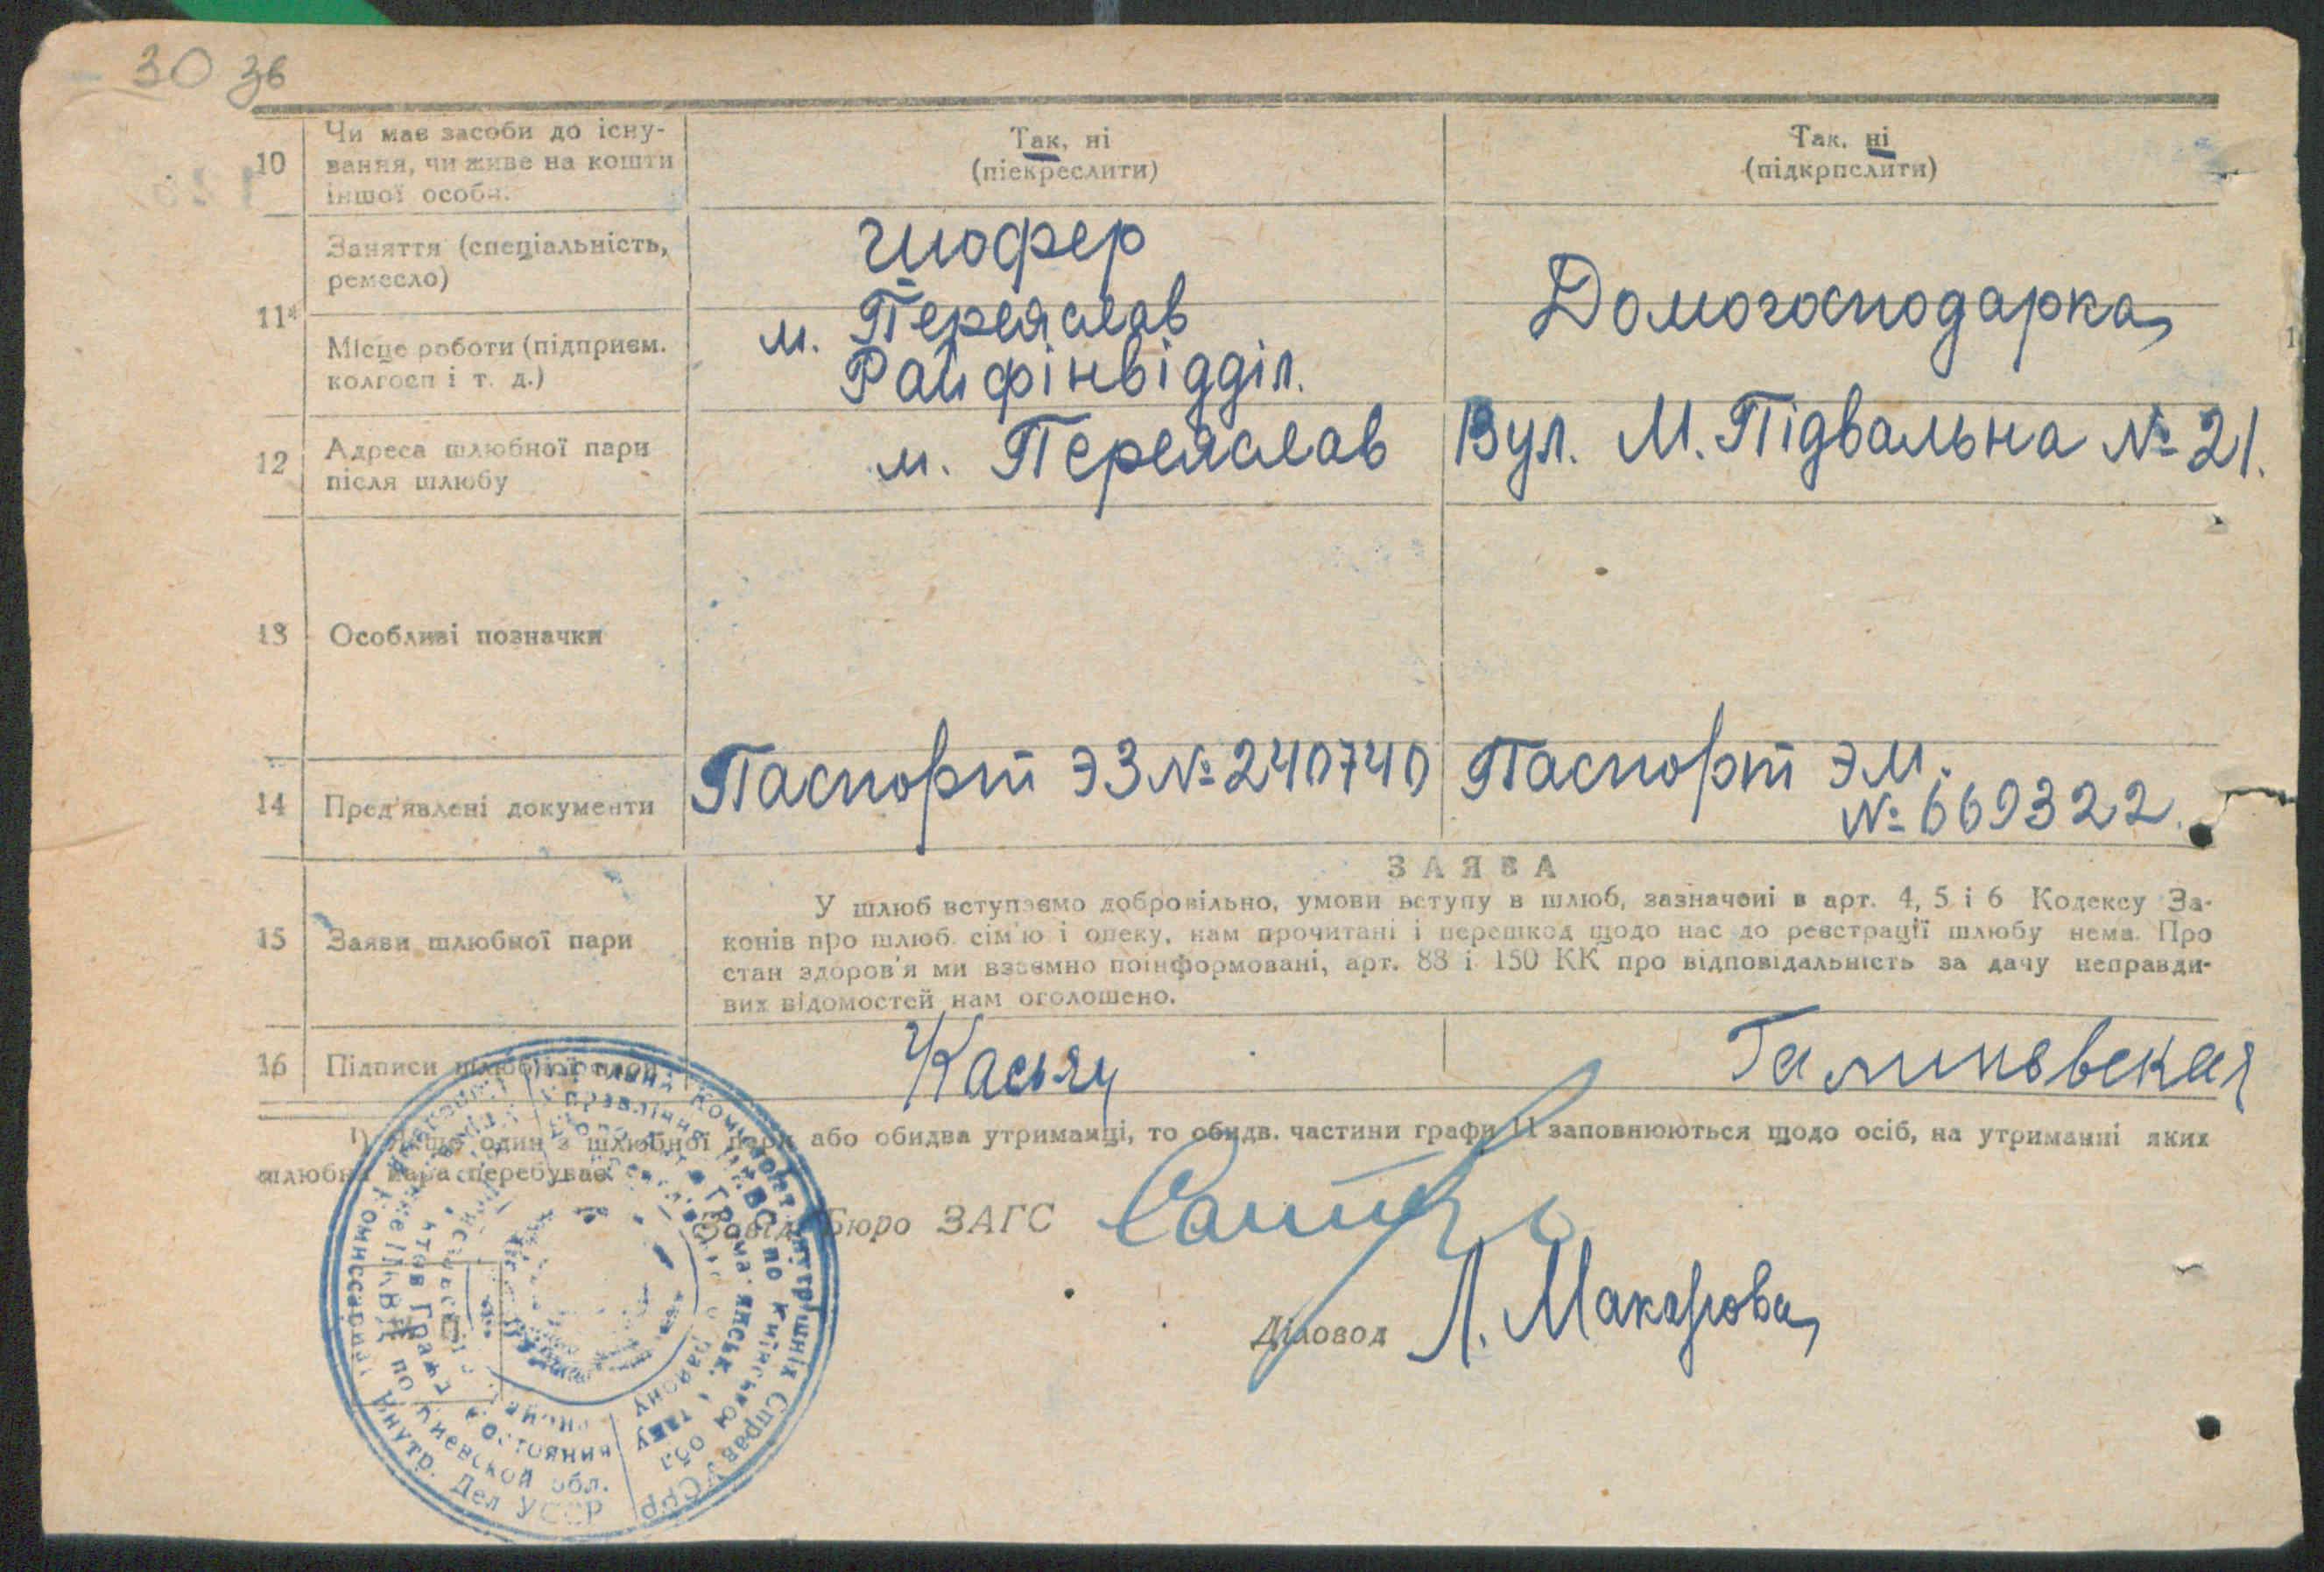 30 зв
10
Чи має засоби до існу-
вання, чи живе на кошти
іншої особи.
Так, ні
(піекреслити)
Так, ні
(підкрпслити)
11
Заняття (спеціальність,
ремесло)
шофер
Домогосподарка
Місце роботи (підприєм.
колгосп і т. д.)
м. Переяслав
Райфінвідділ.
12
Адреса шлюбної пари
після шлюбу
м. Переяслав
Вул. М. Підвальна № 21.
13
Особливі позначки
14
Пред'явлені документи
Паспорт ЭЗ № 240740
Паспорт ЭМ.
№ 669322.
15
Заяви шлюбної пари
ЗАЯВА
У шлюб вступаємо добровільно, умови вступу в шлюб, зазначені в арт. 4, 5 і 6 Кодексу За-
конів про шлюб сім'ю і опеку, нам прочитані і перешкод щодо нас до реєстрації шлюбу нема. Про
стан здоров'я ми взаємно поінформовані, арт. 88 і 150 КК про відповідальність за дачу неправди-
вих відомостей нам оголошено.
16
Підписи шлюбної пари
Касьян
Галиновская
¹) Якщо один з шлюбної пари або обидва утриманці, то обидв. частини графи 11 заповнюються щодо осіб, на утриманні яких
шлюбна пара перебуває.
Завід. Бюро ЗАГС
Діловод Л. Макарова
Внутрішніх Справ УСРР
по Київській обл.
району
Внутр. Дел УССР
по Киевской обл.
состояния
района